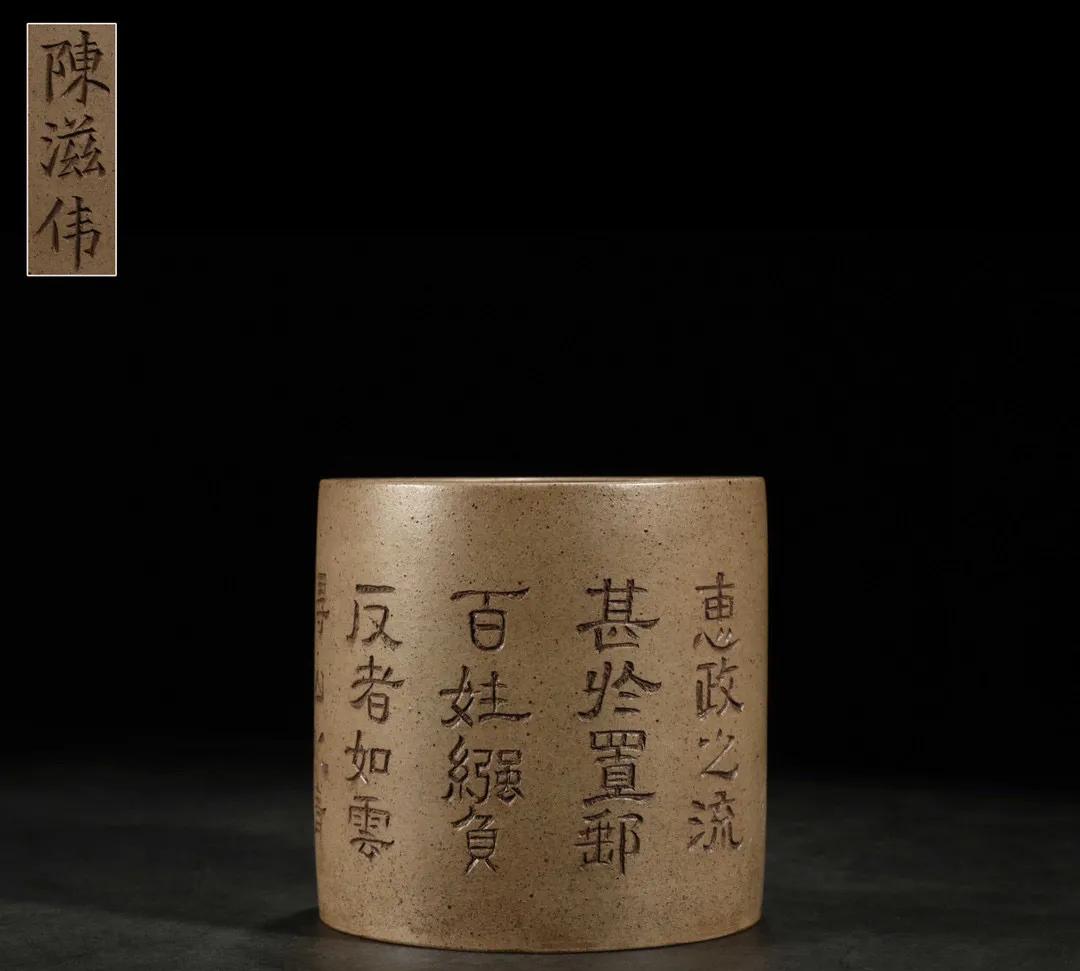 陳滋伟
惠政之流
甚於置郵
百姓繦負
反者如雲